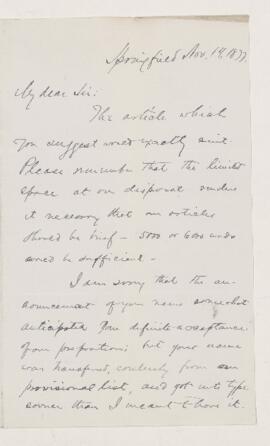 Springfield Nov. 19, 1877.
My dear Sir:
The article which
you suggest would exactly suit.
Please remember that the limited
space at our disposal renders
it necessary that our articles
should be brief – 5000 or 6000 words
would be sufficient –
I am sorry that the an-
nouncement of your name somewhat
anticipated your definite acceptance
of our propositions; but your name
was transferred, contrary from our
provisional list, and got into type
sooner than I meant to have it.